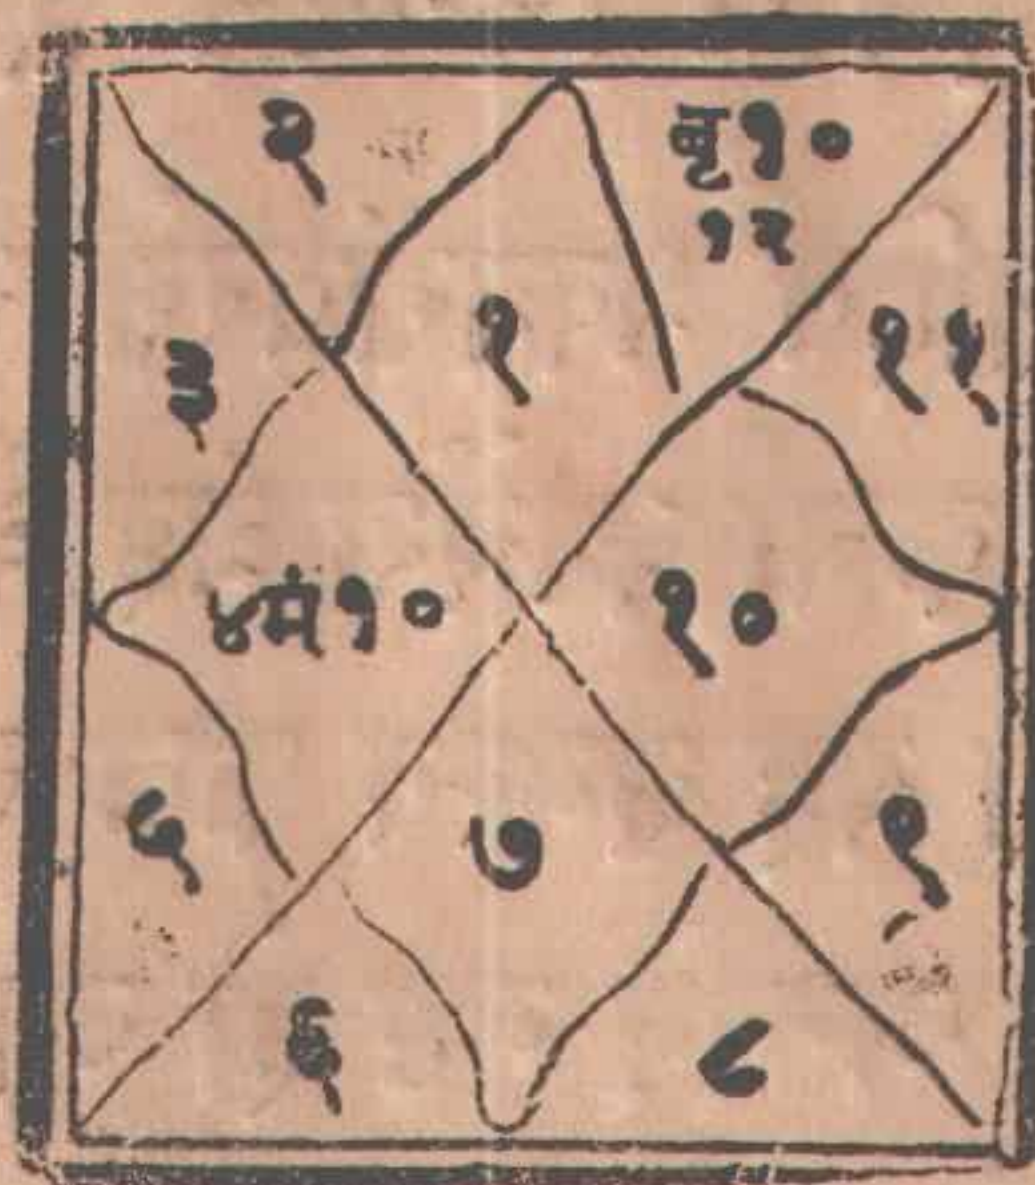 २
बृ१०
१२
१
३
११
४मं१०
१०
५
७
९
६
८